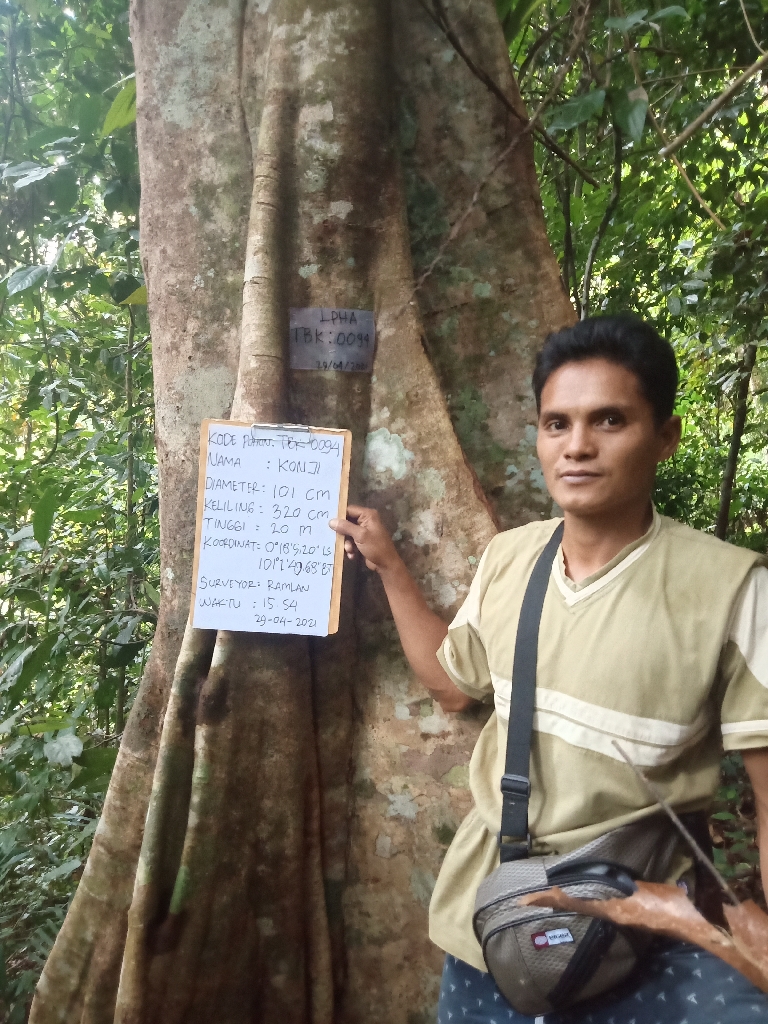 LPHA
TBK : 0094
29/04/2021
KODE POHON: TBK 0094
NAMA : KONJI
DIAMETER : 101 cm
KELILING : 320 cm
TINGGI : 20 m
KOORDINAT = 0°18'5,20" LS
101°1'49,68" BT
SURVEYOR = RAMLAN
WAKTU : 15 54
29-04-2021